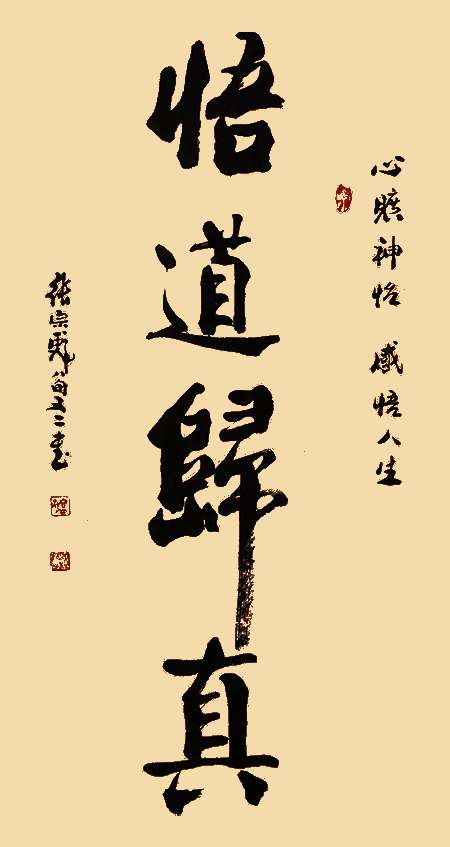 心曠神怡 感悟人生
悟道歸真
張宗旬又二書